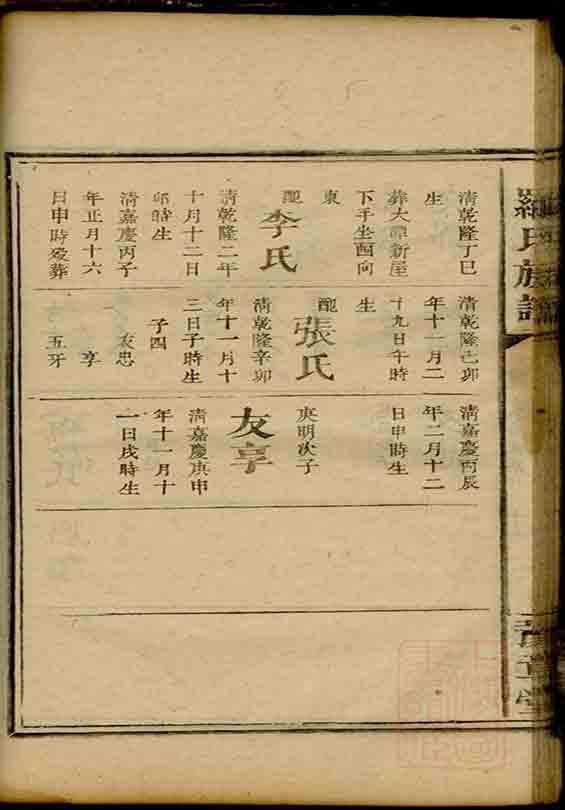 羅氏族譜
清乾隆丁巳
生
葬大潭新屋
下手坐酉向
東
配
李氏
清乾隆二年
十月十二日
卯時生
清嘉慶丙子
年正月十六
日申時歿葬
清乾隆己卯
年十一月二
十九日午時
生
配
張氏
清乾隆辛卯
年十一月十
三日子時生
子四
友忠
亨
五牙
清嘉慶丙辰
年二月十二
日申時生
明次子
友亨
清嘉慶庚申
年十一月十
一日戌時生